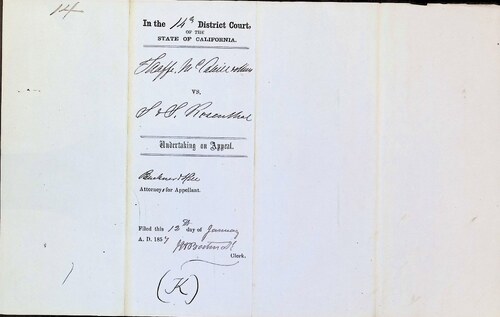 14
In the 14th District Court,
OF THE
STATE OF CALIFORNIA.
vs.
S & S. Rosenthal
Undertaking on Appeal.
Attorneys for Appellant.
Filed this 12th day of January
A. D. 1857
Clerk.
(K)